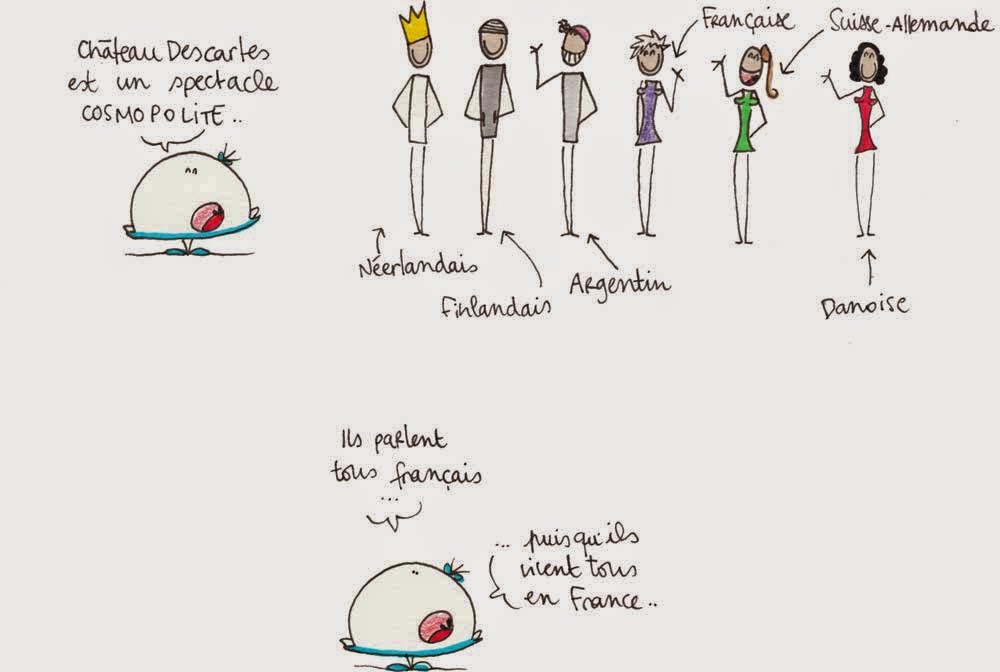 Château Descartes
est un spectacle
COSMOPOLITE..
Française
Suisse-Allemande
Néerlandais
Finlandais
Argentin
Danoise
Ils parlent
tous français
...
... puisqu'ils
vivent tous
en France..